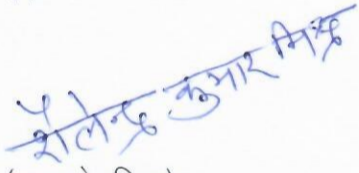 शैलेन्द्र कुमार मिश्र